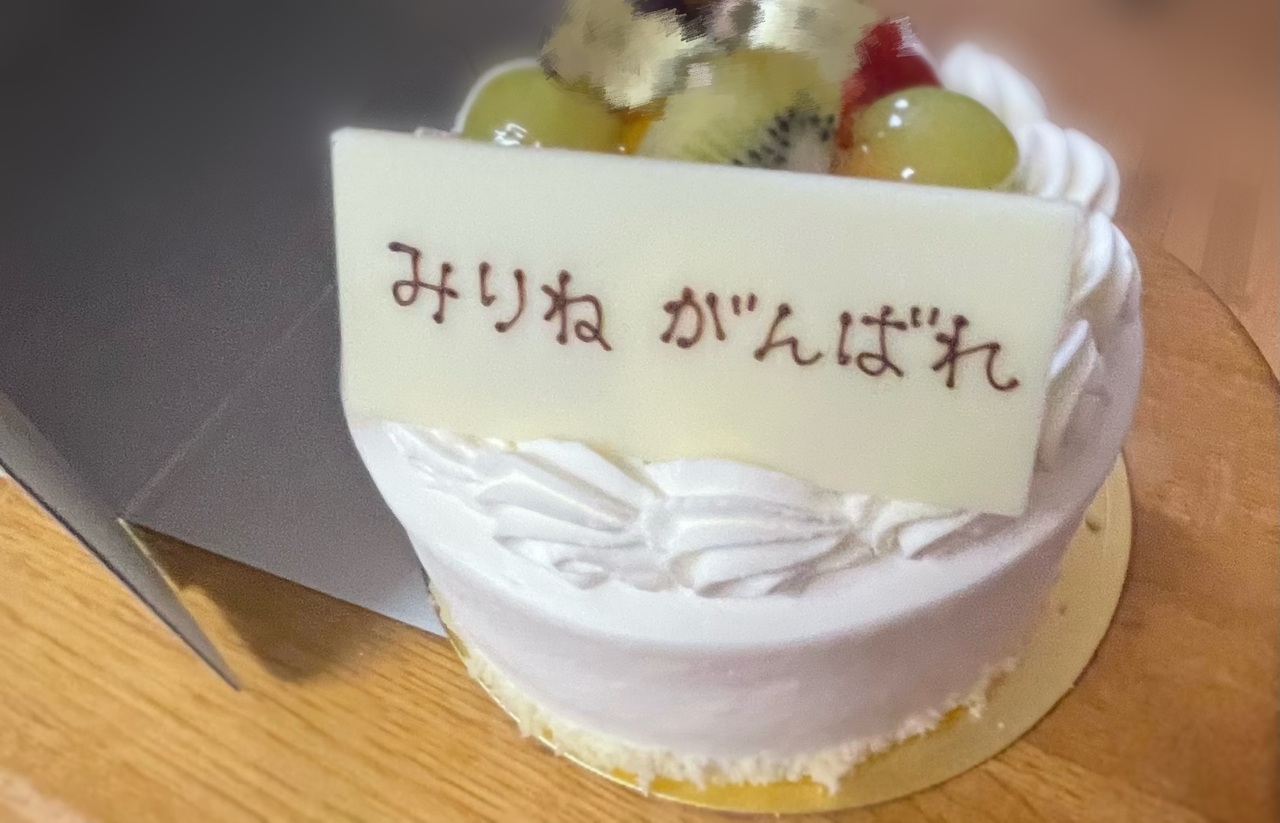 みりね がんばれ